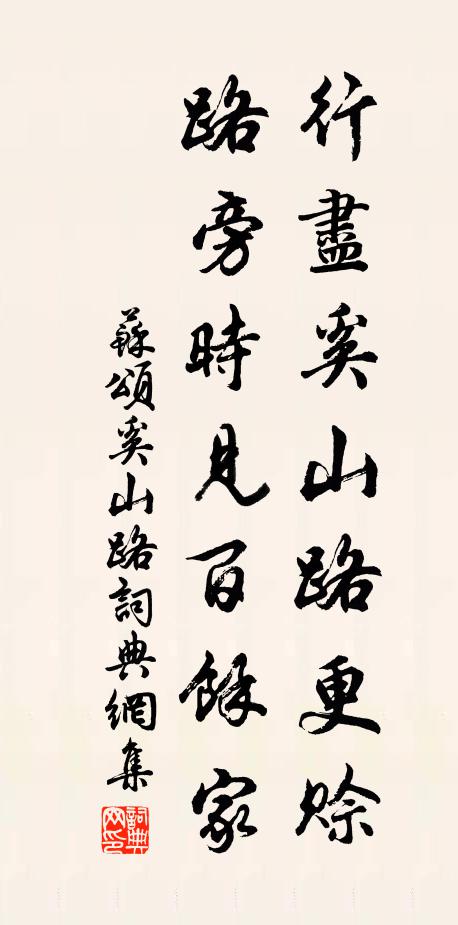 行盡奚山路更賒
路旁時見百餘家
蘇頌奚山路詞典網集
詞典網印